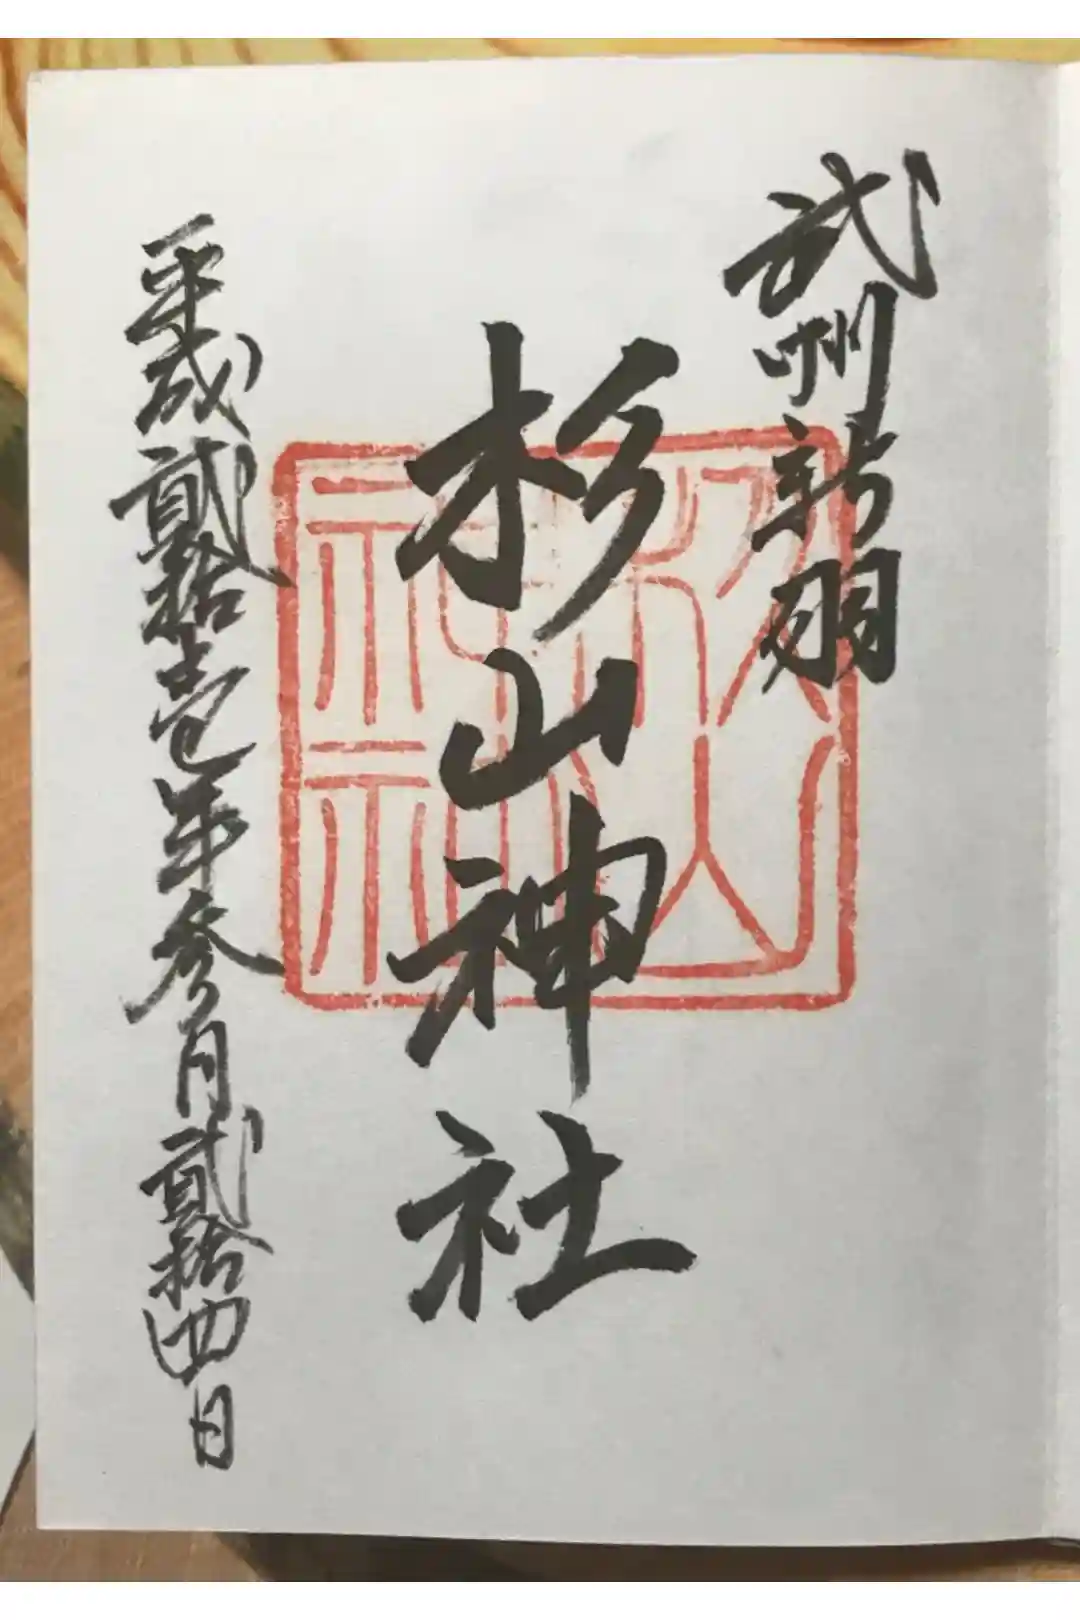 武州新羽
杉山神社
平成貳拾壱年参月貳拾四日